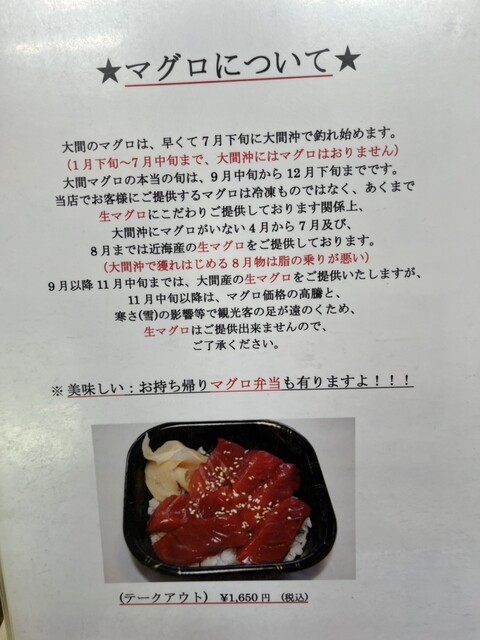 ★マグロについて★
大間のマグロは、早くて7月下旬に大間沖で釣れ始めます。
(1月下旬～7月中旬まで、大間沖にはマグロはおりません)
大間マグロの本当の旬は、9月中旬から12月下旬までです。
当店でお客様にご提供するマグロは冷凍ものではなく、あくまで
生マグロにこだわりご提供しております関係上、
大間沖にマグロがいない4月から7月及び、
8月までは近海産の生マグロをご提供しております。
(大間沖で獲れはじめる8月物は脂の乗りが悪い)
9月以降11月中旬までは、大間産の生マグロをご提供いたしますが、
11月中旬以降は、マグロ価格の高騰と、
寒さ(雪)の影響等で観光客の足が遠のくため、
生マグロはご提供出来ませんので、
ご了承ください。
※美味しい：お持ち帰りマグロ弁当も有りますよ！！！
(テークアウト) ¥1,650円 (税込)